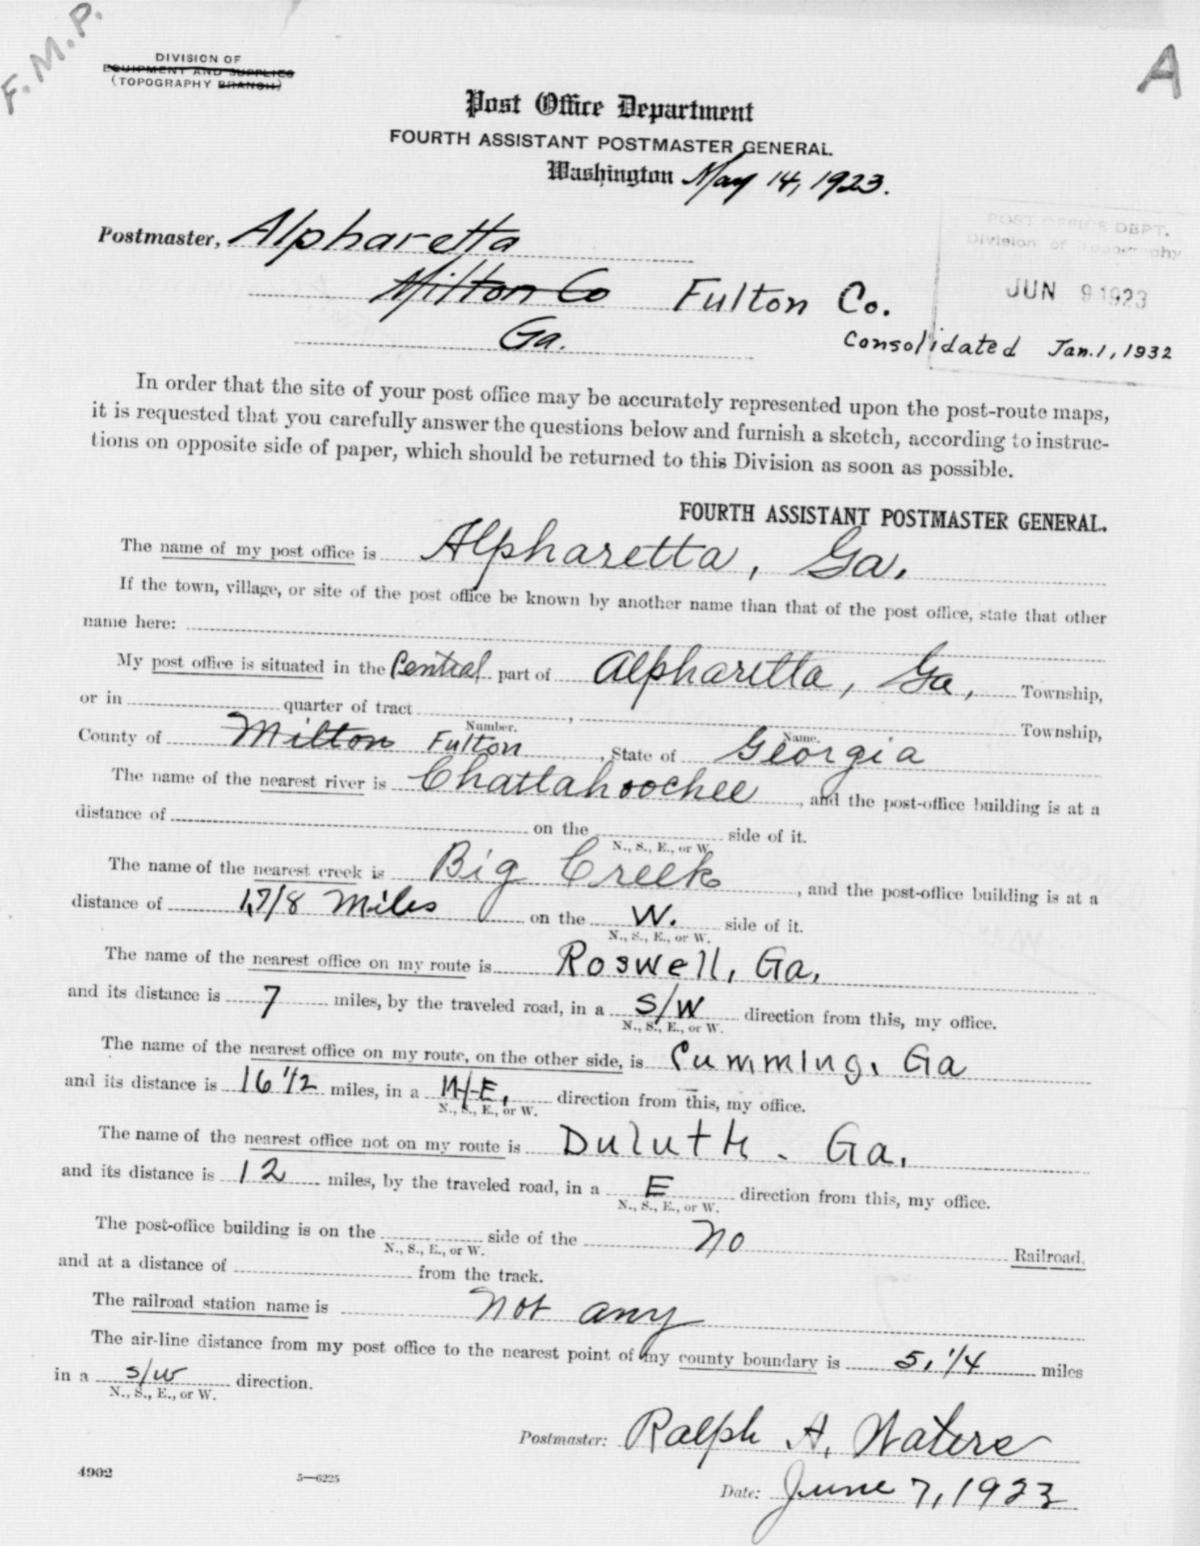 F.M.P.
A
DIVISION OF
EQUIPMENT AND SUPPLIES
(TOPOGRAPHY BRANCH)
Post Office Department
FOURTH ASSISTANT POSTMASTER GENERAL
Washington May 14, 1923.
POST OFFICE DEPT.
Division of Topography
JUN 9 1923
Postmaster, Alpharetta
Milton Co Fulton Co.
Ga. Consolidated Jan. 1, 1932
In order that the site of your post office may be accurately represented upon the post-route maps,
it is requested that you carefully answer the questions below and furnish a sketch, according to instruc-
tions on opposite side of paper, which should be returned to this Division as soon as possible.
FOURTH ASSISTANT POSTMASTER GENERAL.
The name of my post office is Alpharetta, Ga.
If the town, village, or site of the post office be known by another name than that of the post office, state that other
name here:
My post office is situated in the Central part of Alpharetta, Ga, Township,
or in quarter of tract , Township,
Number. Name.
County of Milton Fulton , State of Georgia
The name of the nearest river is Chattahoochee , and the post-office building is at a
distance of on the side of it.
N., S., E., or W.
The name of the nearest creek is Big Creek , and the post-office building is at a
distance of 1,7/8 Miles on the W. side of it.
N., S., E., or W.
The name of the nearest office on my route is Roswell, Ga.
and its distance is 7 miles, by the traveled road, in a S/W direction from this, my office.
N., S., E., or W.
The name of the nearest office on my route, on the other side, is Cumming. Ga
and its distance is 16 1/2 miles, in a N/E, direction from this, my office.
N., S., E., or W.
The name of the nearest office not on my route is Duluth. Ga.
and its distance is 12 miles, by the traveled road, in a E direction from this, my office.
N., S., E., or W.
The post-office building is on the side of the no Railroad,
N., S., E., or W.
and at a distance of from the track.
The railroad station name is not any
The air-line distance from my post office to the nearest point of my county boundary is 5, 1/4 miles
in a S/W direction.
N., S., E., or W.
Postmaster: Ralph A. Waters
4902 5—6225
Date: June 7, 1923